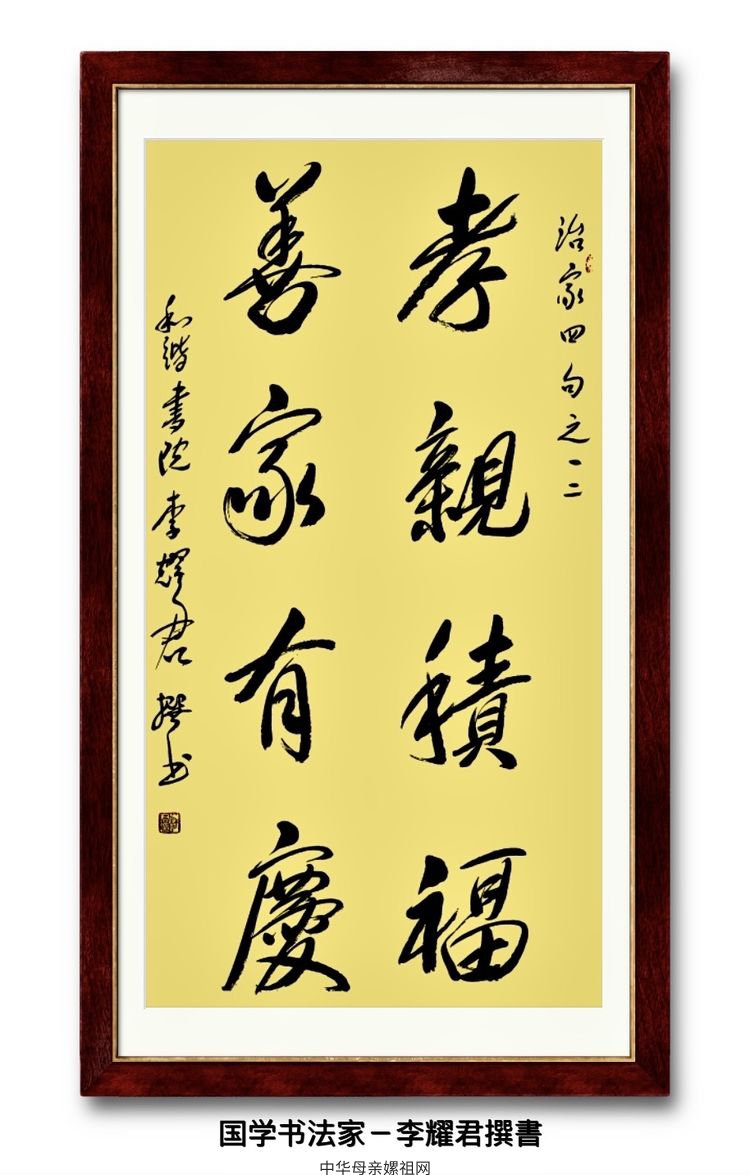 治家四句之一二
孝親積福
善家有慶
和谐书院李耀君撰书
国学书法家－李耀君撰書
中华母亲嫘祖网